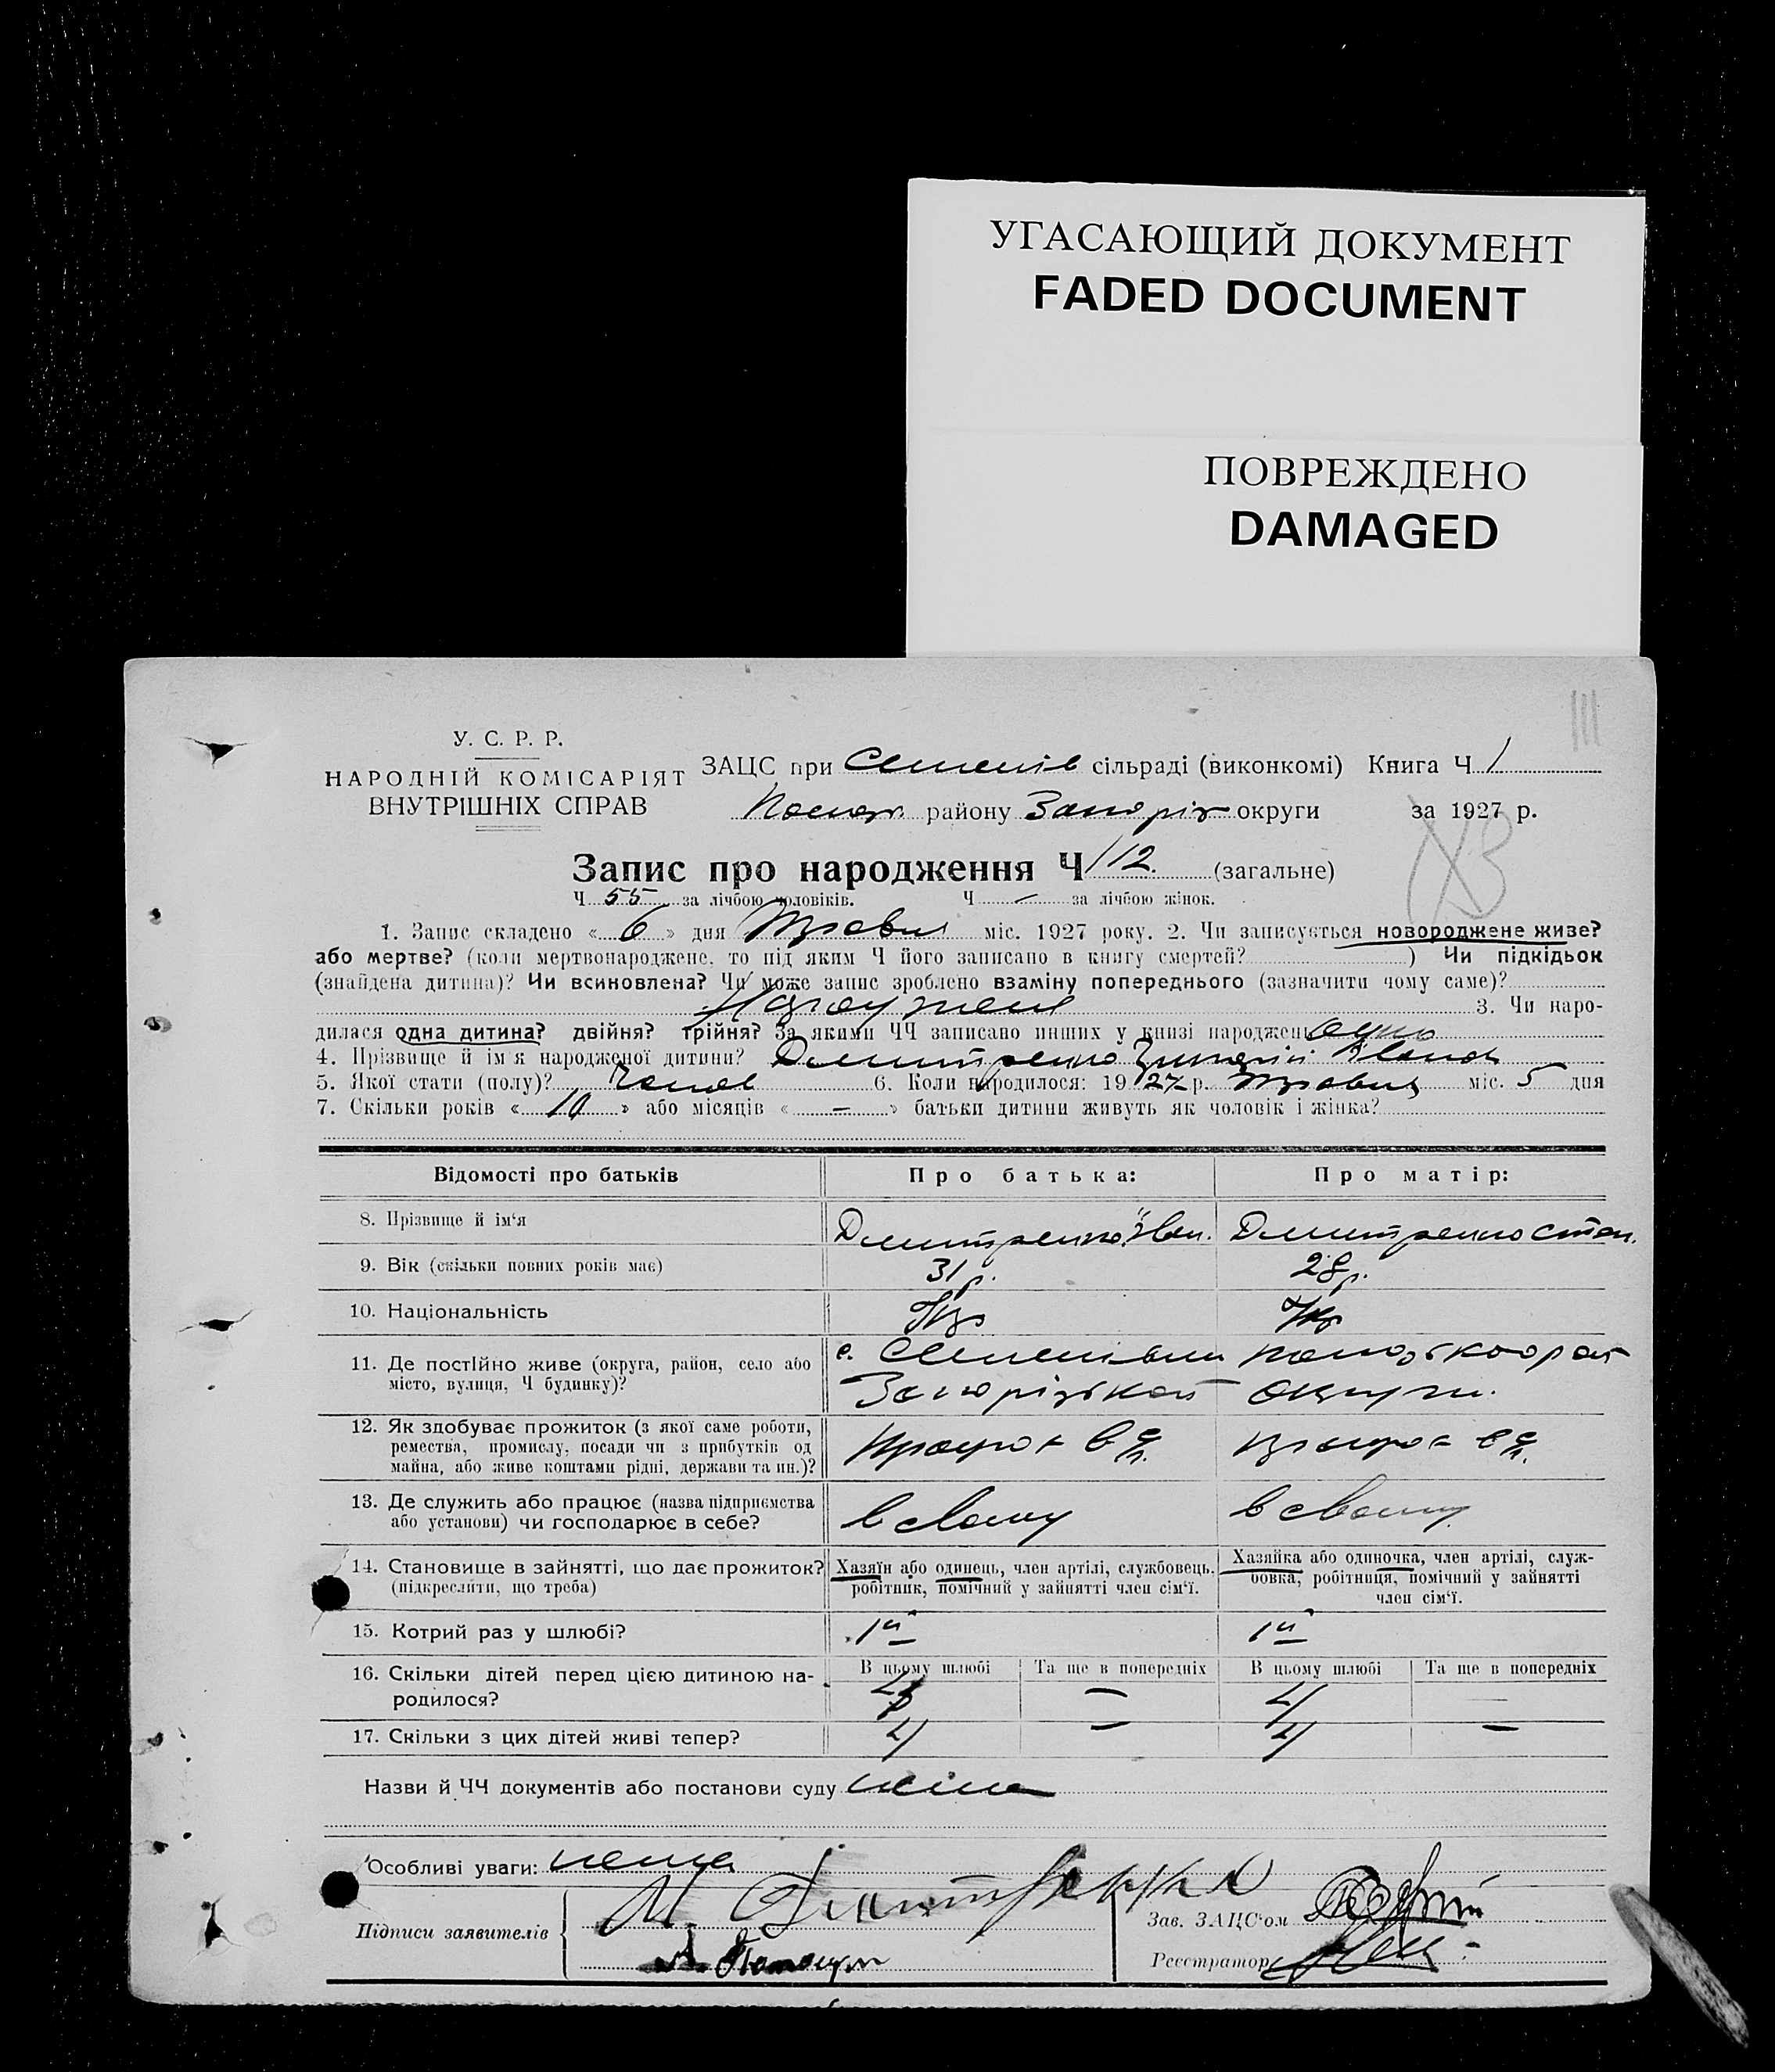 УГАСАЮЩИЙ ДОКУМЕНТ
FADED DOCUMENT
ПОВРЕЖДЕНО
DAMAGED
III
У. С. Р. Р.
НАРОДНІЙ КОМІСАРІЯТ
ВНУТРІШНІХ СПРАВ
ЗАЦС при Семенів сільраді (виконкомі) Книга Ч 1
району Запоріз округи за 1927 р.
Запис про народження Ч 112. (загальне)
Ч 55 за лічбою чоловіків. Ч — за лічбою жінок.
1. Запис складено « 6 » дня Травня міс. 1927 року. 2. Чи записується новороджене живе?
або мертве? (коли мертвонароджене, то під яким Ч його записано в книгу смертей? ) Чи підкідьок
(знайдена дитина)? Чи всиновлена? Чи може запис зроблено взаміну попереднього (зазначити чому саме)?
3. Чи наро-
дилася одна дитина? двійня? трійня? За якими ЧЧ записано инших у книзі народжень
4. Прізвище й ім'я народженої дитини? Дмитренко
5. Якої стати (полу)? 6. Коли народилося: 1927 р. Травня міс. 5 дня
7. Скільки років « 10 » або місяців « — » батьки дитини живуть як чоловік і жінка?
Відомості про батьків
Про батька:
Про матір:
8. Прізвище й ім'я
Дмитренко Іван.
Дмитренко Степ.
9. Вік (скільки повних років має)
31 р.
28 р.
10. Національність
Укр
Укр
11. Де постійно живе (округа, район, село або
місто, вулиця, Ч будинку)?
с. Семенівки
Запорізької округи.
12. Як здобуває прожиток (з якої саме роботи,
ремества, промислу, посади чи з прибутків од
майна, або живе коштами рідні, держави та ин.)?
13. Де служить або працює (назва підприємства
або установи) чи господарює в себе?
в своєму
в своєму
14. Становище в зайнятті, що дає прожиток?
(підкреслити, що треба)
Хазяїн або одинець, член артілі, службовець,
робітник, помічний у зайнятті член сім'ї.
Хазяйка або одиночка, член артілі, служ-
бовка, робітниця, помічний у зайнятті
член сім'ї.
15. Котрий раз у шлюбі?
1й
1й
16. Скільки дітей перед цією дитиною на-
родилося?
В цьому шлюбі Та ще в попередніх В цьому шлюбі Та ще в попередніх
4 — 4 —
17. Скільки з цих дітей живі тепер?
4 — 4 —
Назви й ЧЧ документів або постанови суду нема
Особливі уваги: нема
Підписи заявителів
М. Дмитренко
Зав. ЗАЦС'ом
Реєстратор